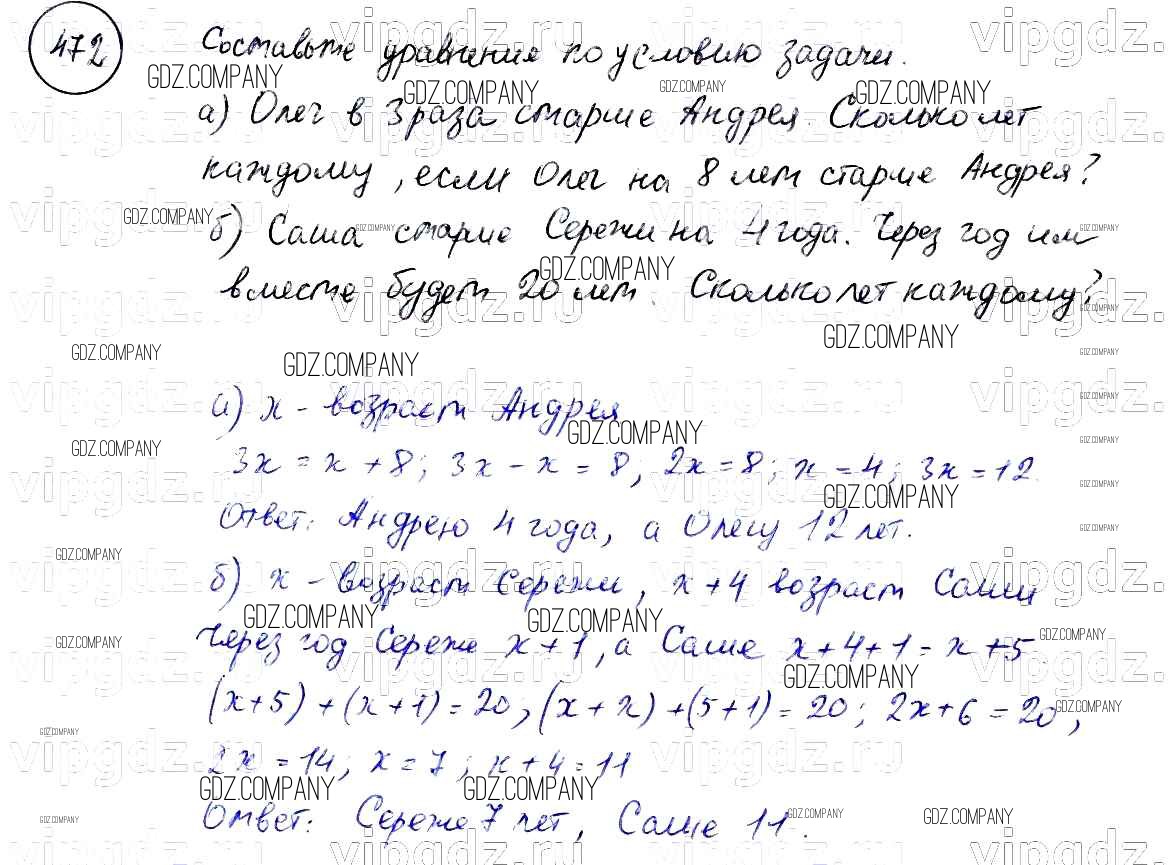 472 Составьте уравнение по условию задачи.
а) Олег в 3 раза старше Андрея. Сколько лет
каждому, если Олег на 8 лет старше Андрея?
б) Саша старше Сережи на 4 года. Через год им
вместе будет 20 лет. Сколько лет каждому?
а) x - возраст Андрея
3x = x + 8; 3x - x = 8; 2x = 8; x = 4; 3x = 12.
Ответ: Андрею 4 года, а Олегу 12 лет.
б) x - возраст Сережи, x+4 возраст Саши
Через год Сереже x+1, а Саше x+4+1 = x+5
(x+5) + (x+1) = 20; (x+x) + (5+1) = 20; 2x+6 = 20;
2x = 14; x = 7; x+4 = 11
Ответ: Сереже 7 лет, Саше 11.
GDZ.COMPANY
vipgdz.ru